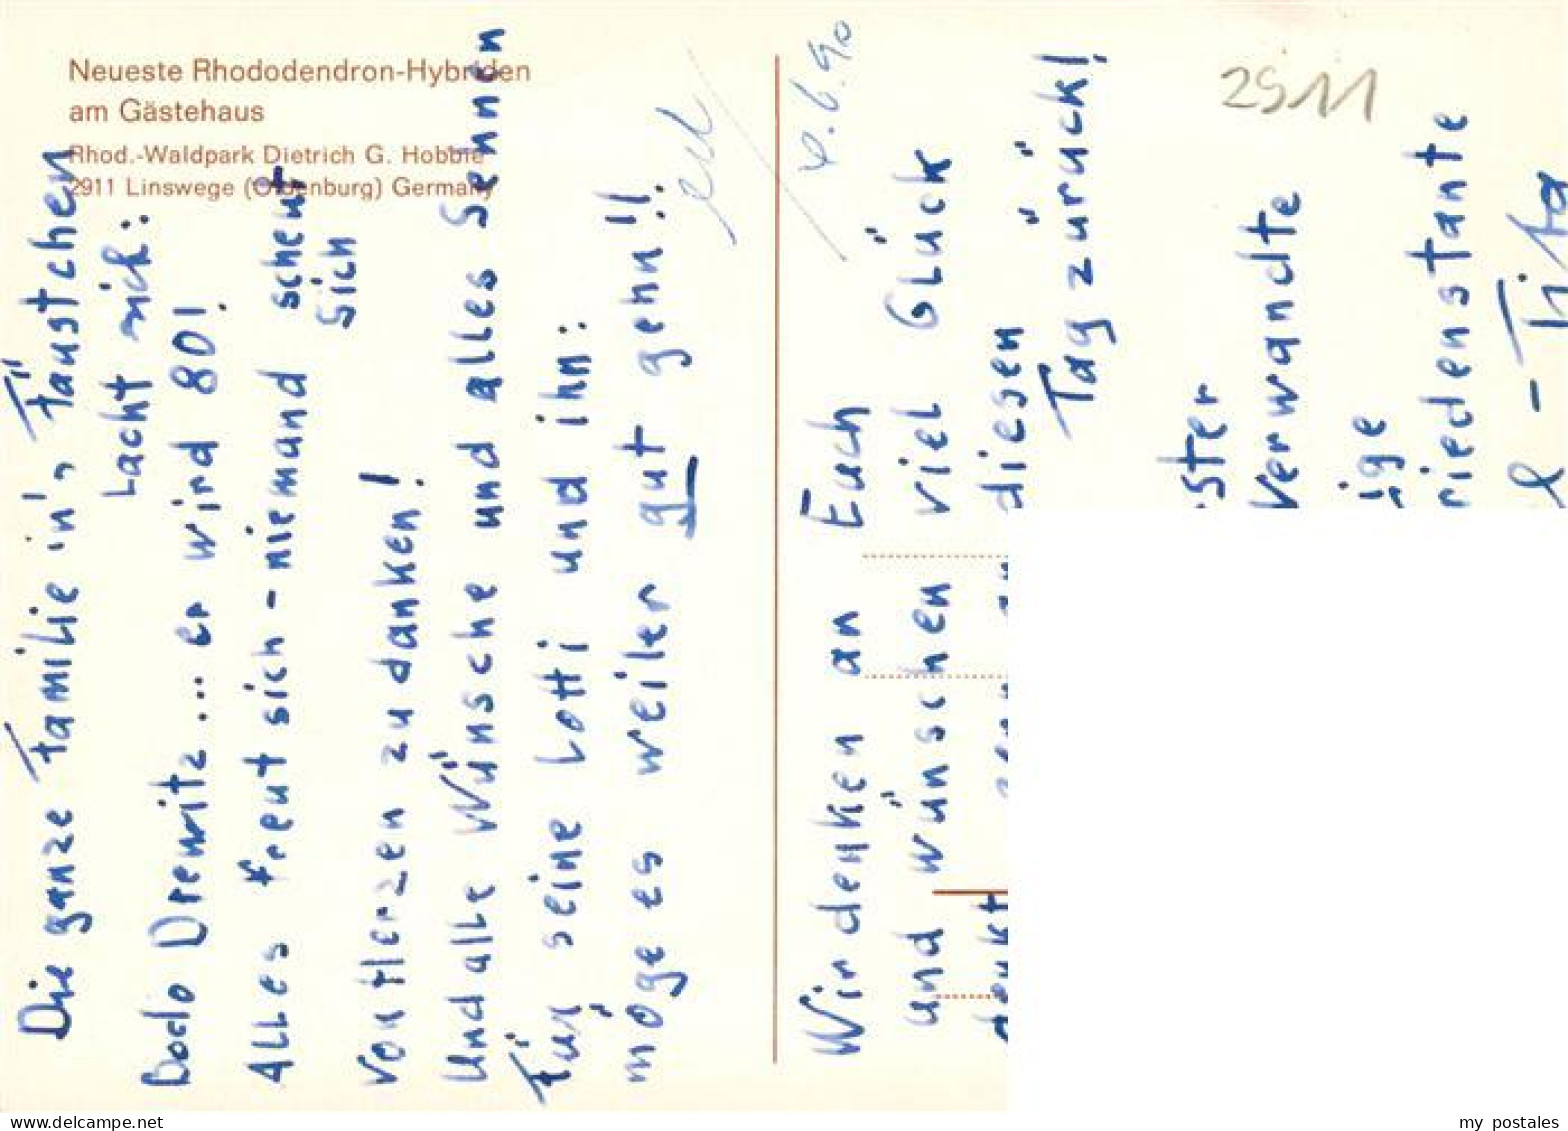 Neueste Rhododendron-Hybriden
am Gästehaus
Rhod.-Waldpark Dietrich G. Hobbie
2911 Linswege (Oldenburg) Germany
Die ganze Familie in's Fäustchen
Lacht sich:
Dodo Drewitz... er wird 80!
Alles freut sich - niemand scheut
sich
von Herzen zu danken!
Und alle Wünsche und alles Sehnen
Für seine Lotti und ihn:
möge es weiter gut gehn!!
4.6.90
Wir denken an Euch
und wünschen viel Glück
denkt gern an diesen
Tag zurück!
2911
ster
Verwandte
ige
riedenstante
- Tita
my postales
www.delcampe.net